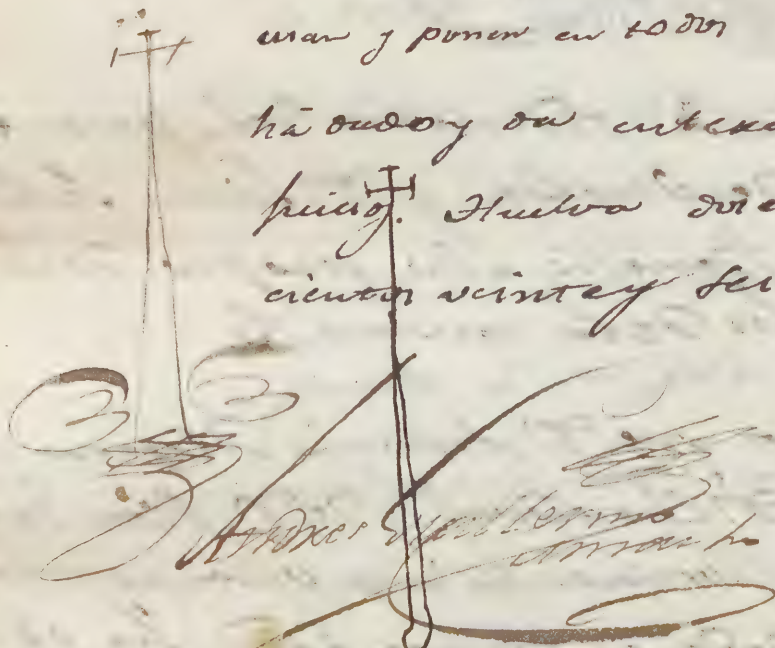 usan y ponen en todos
há dado y da entera
juicio. Huelva doce
cientos veinte y sei
Andres Guillermo
Camacho